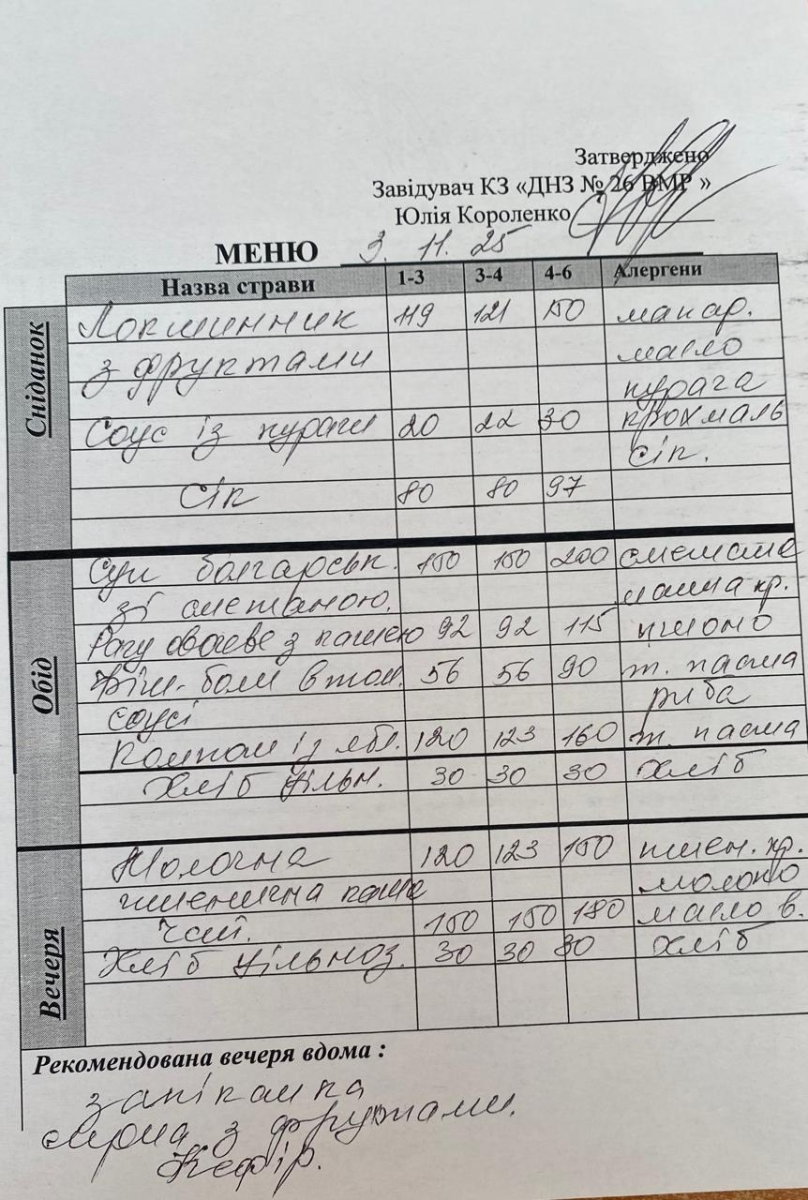 Затверджено
Завідувач КЗ «ДНЗ № 26 ВМР »
Юлія Короленко
МЕНЮ 3. 11. 25
Назва страви 1-3 3-4 4-6 Алергени
Сніданок
Локшинник 119 121 150 макар.
з фруктами масло
курага
Соус із кураги 20 22 30 крохмаль
сік.
Сік 80 80 97
Обід
Суп болгарськ. 150 150 200 сметана
зі сметаною. манна кр.
Рагу овочеве з кашею 92 92 115 пшоно
Фіш-боли в том. 56 56 90 т. паста
соусі риба
Компот із ябл. 120 123 160 т. паста
Хліб цільн. 30 30 30 хліб
Вечеря
Молочна 120 123 150 пшен. кр.
пшенична каша молоко
Чай. 150 150 180 масло в.
Хліб цільноз. 30 30 30 хліб
Рекомендована вечеря вдома :
запіканка
сирна з фруктами.
Кефір.